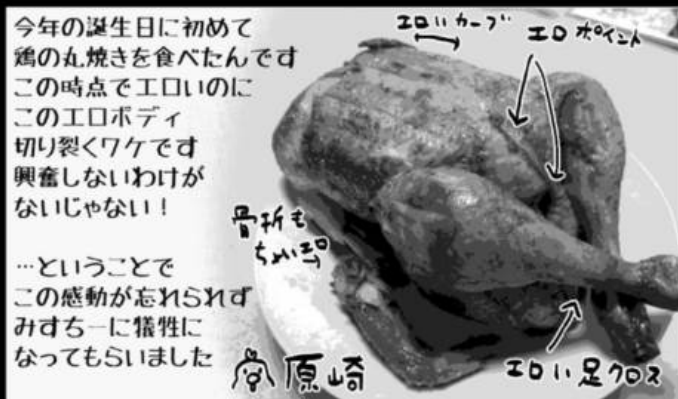 今年の誕生日に初めて
鶏の丸焼きを食べたんです
この時点でエロいのに
このエロボディ
切り裂くワケです
興奮しないわけが
ないじゃない！
…ということで
この感動が忘れられず
みすちーに犠牲に
なってもらいました
エロいカーブ
エロポイント
骨折も
ちょいエロ
エロい足クロス
原崎